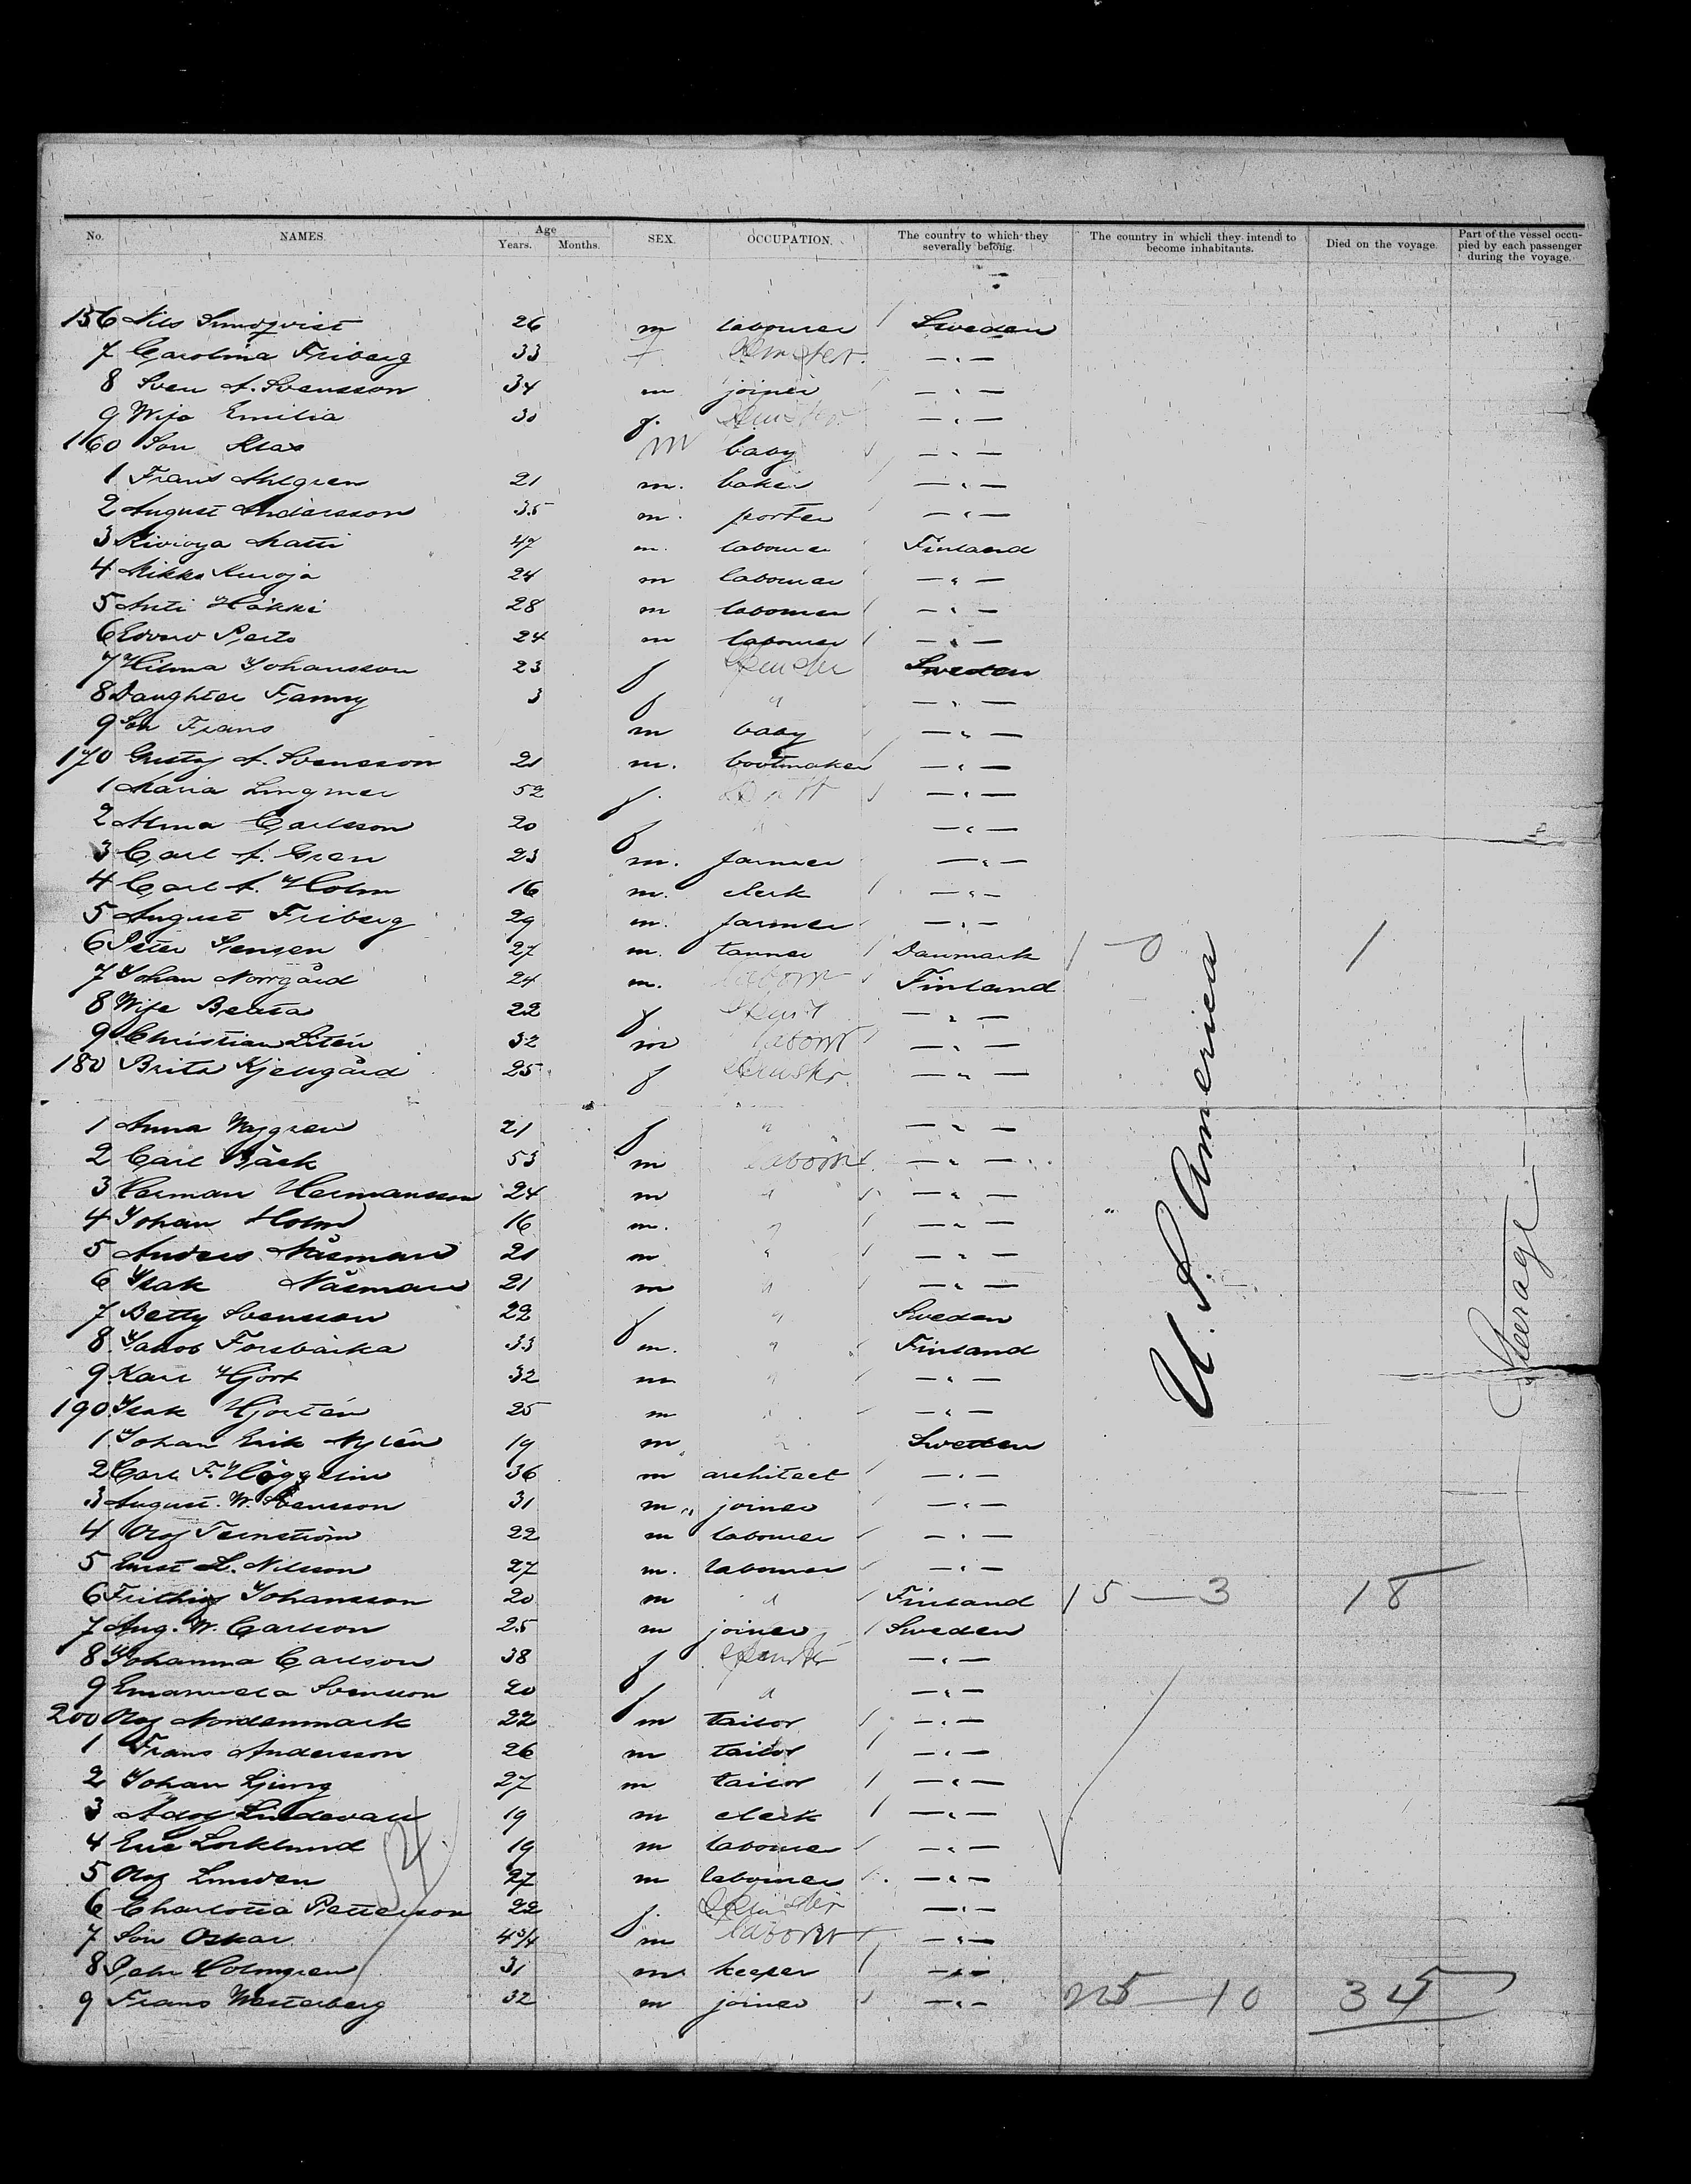 No. NAMES. Age Years. Months. SEX. OCCUPATION. The country to which they severally belong. The country in which they intend to become inhabitants. Died on the voyage. Part of the vessel occupied by each passenger during the voyage.
156 Nils Sundqvist 26 m labourer Sweden
7 Carolina Friberg 33 f. Spinster. — " —
8 Sven A. Svensson 34 m joiner — " —
9 Wife Emilia 30 f. Spinster — " —
160 Son Klas m baby — " —
1 Frans Ahlgren 21 m. baker — " —
2 August Andersson 35 m. porter — " —
3 Matti 47 m. labourer Finland
4 Mikko 24 m labourer — " —
5 Anti Häkki 28 m labourer — " —
6 Edvard 24 m labourer — " —
7 Hilma Johansson 23 f Spinster Sweden
8 Daughter Fanny 3 f " — " —
9 Son Frans m baby — " —
170 Gustaf A. Svensson 21 m. bootmaker — " —
1 Maria Lingmer 52 f. — " —
2 Alma Carlsson 20 f " — " —
3 Carl A. Gren 23 m. farmer — " —
4 Carl A. Holm 16 m. clerk — " —
5 August Friberg 29 m. farmer — " —
6 Peter Jensen 27 m. tanner Danmark 1—0 1
7 Johan Norrgård 24 m. labour Finland
8 Wife Beata 22 f Spinst — " —
9 Christian Litén 32 m labour — " —
180 Brita Kjellgård 25 f Spinster. — " —
1 Anna 21 f " — " —
2 Carl Bäck 53 m labour — " —
3 Herman Hermansson 24 m " — " —
4 Johan Holm 16 m. " — " —
5 Anders Näsman 21 m " — " —
6 Isak Näsman 21 m " — " —
7 Betty Svensson 22 f " Sweden
8 Jakob Forsbacka 33 m. " Finland
9 Karl Hjort 32 m " — " —
190 Isak Hjortén 25 m " — " —
1 Johan Erik Nylén 19 m " Sweden
2 Carl F. 36 m architect — " —
3 August. W. Svensson 31 m joiner — " —
4 Olof Ternström 22 m labourer — " —
5 Ernst L. Nilsson 27 m. labourer — " —
6 Frithiof Johansson 20 m " Finland 15—3 18
7 Aug. W. Carlson 25 m joiner Sweden
8 Johanna Carlson 38 f Spinster — " —
9 Emanuela Svensson 20 f " — " —
200 Olof Nordenmark 22 m tailor — " —
1 Frans Andersson 26 m tailor — " —
2 Johan Ljung 27 m tailor — " —
3 Adolf Lindevall 19 m clerk — " —
4 Eric 19 m labourer — " —
5 Olof Lunden 27 m labourer — " —
6 Charlotta Petterson 22 f. Spinster — " —
7 Son Oskar 4 m labour — " —
8 Pehr Holmgren 31 m keeper — " —
9 Frans Westerberg 32 m joiner — " — 25—10 35
U. S. America
Steerage